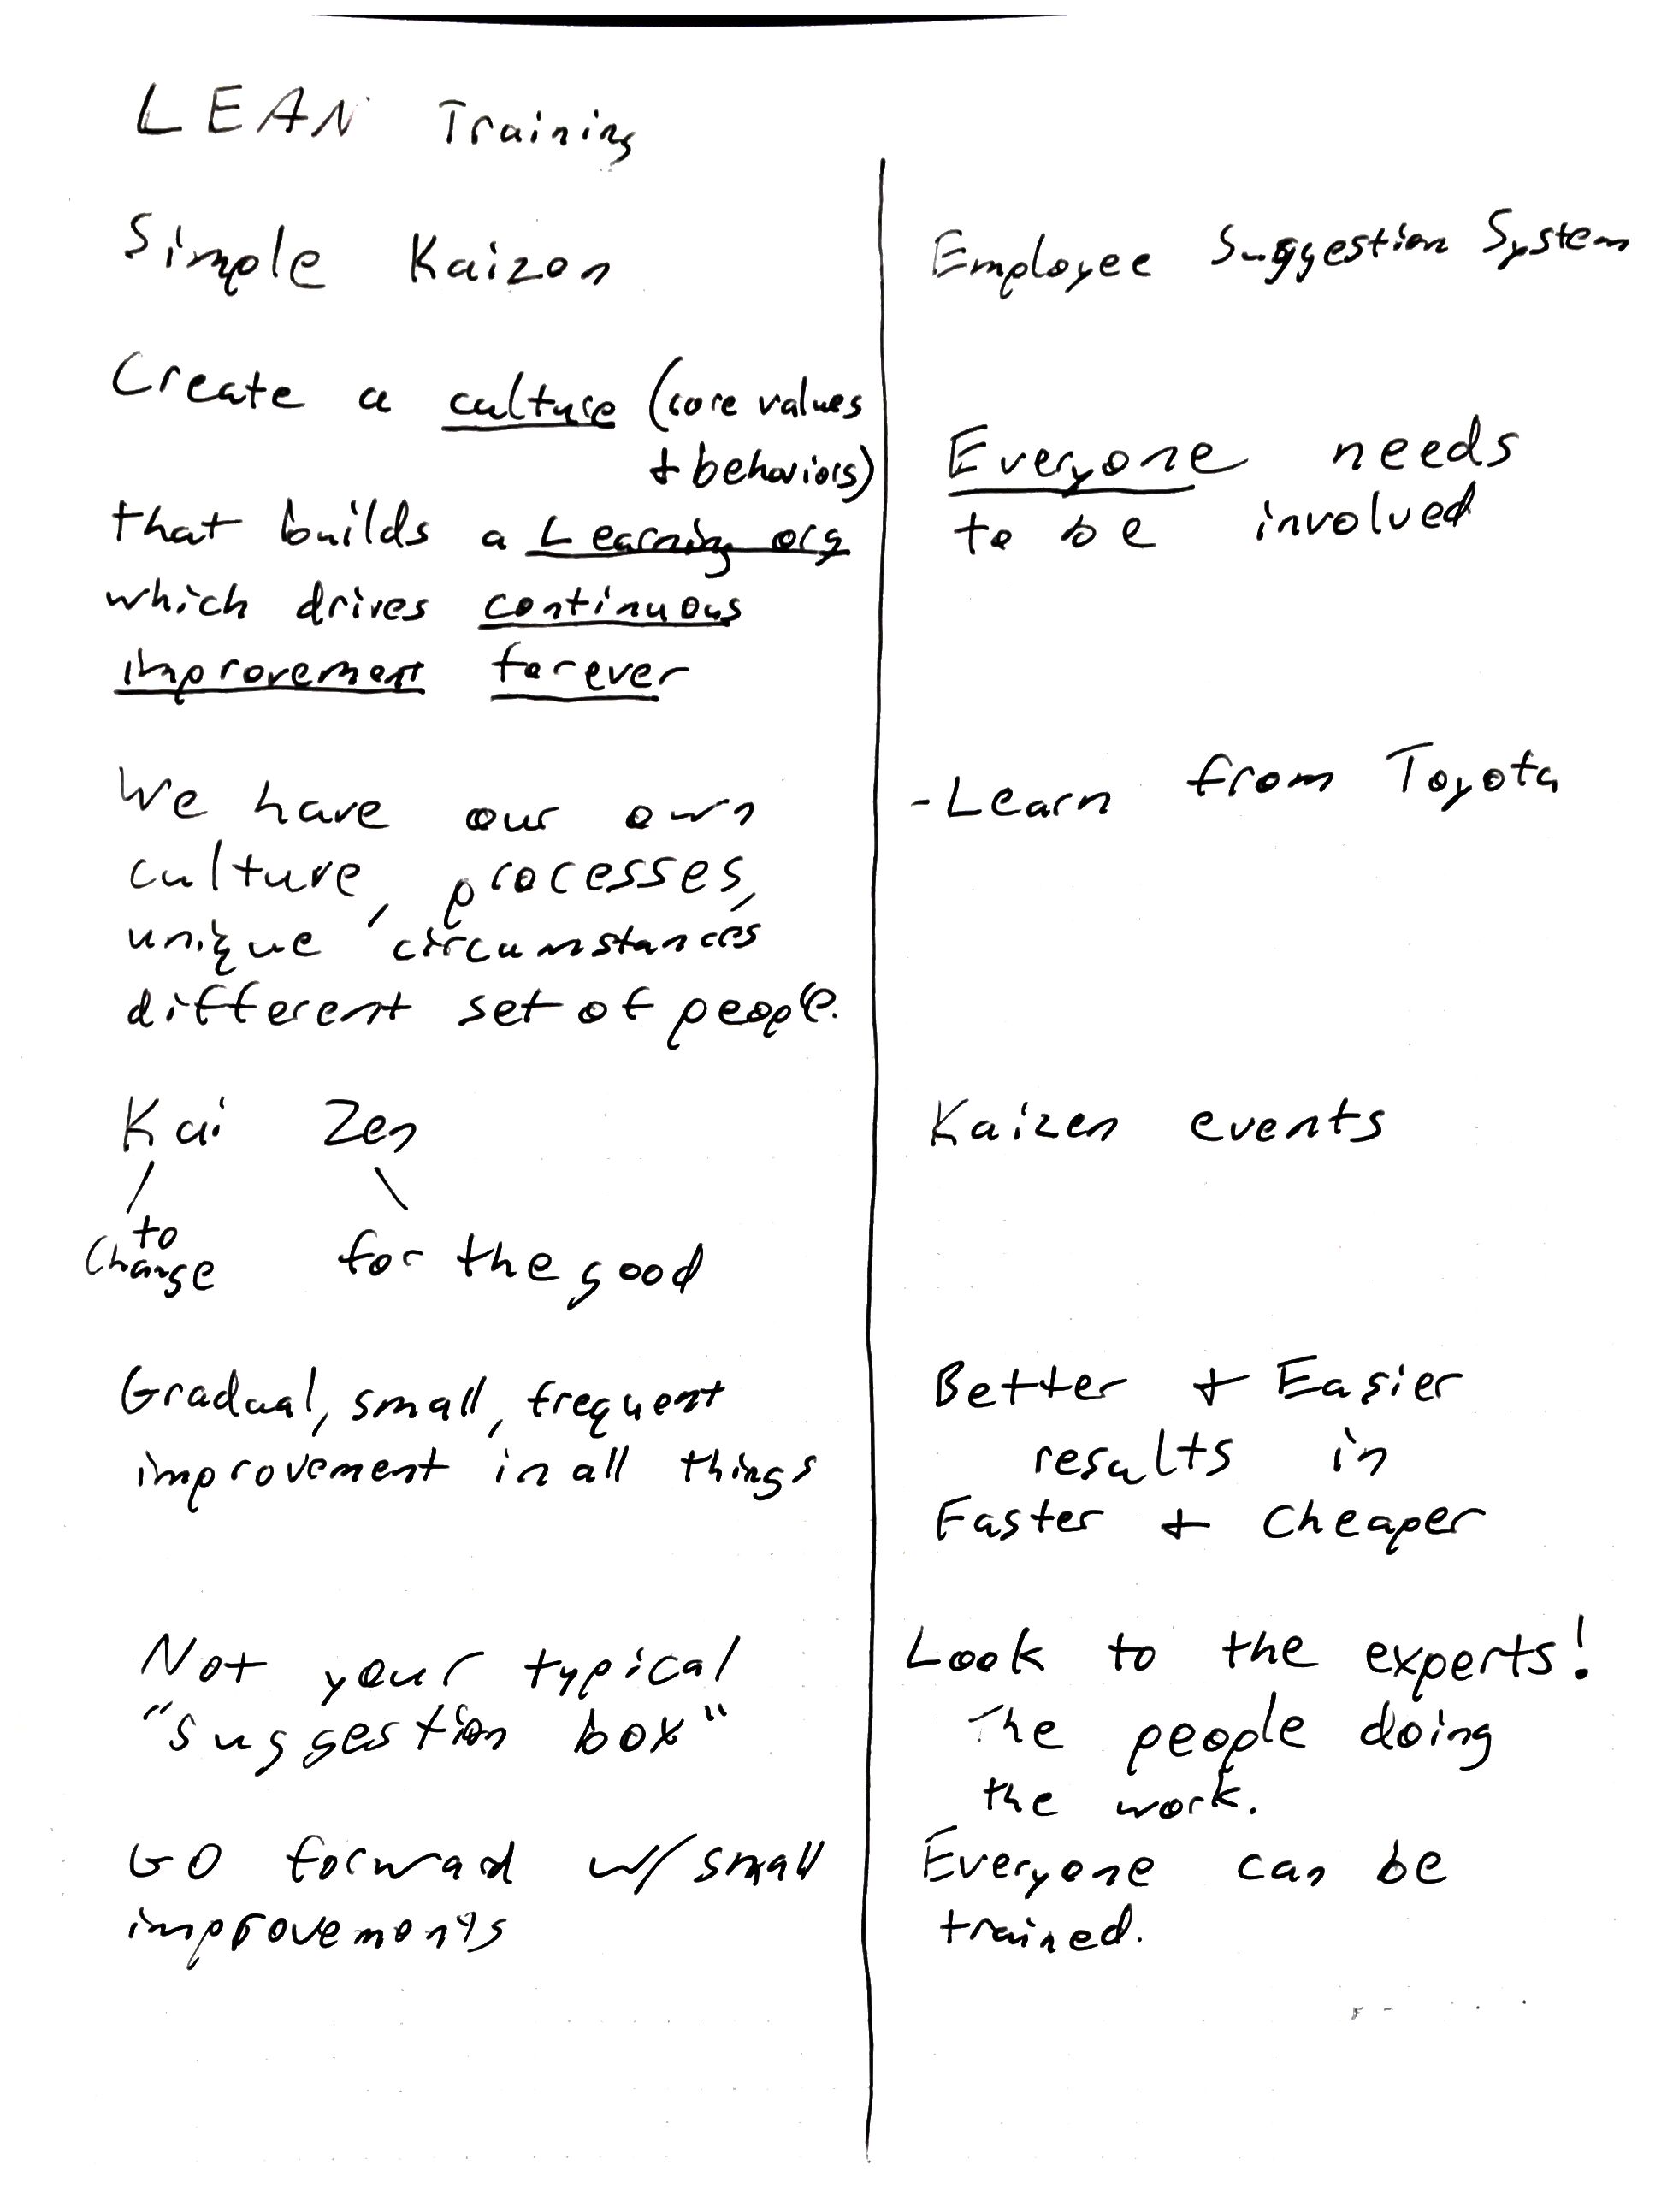 LEAN Training
Simple Kaizen
Create a culture (core values
+ behaviors)
that builds a Learning org
which drives continuous
improvement forever
We have our own
culture, processes,
unique circumstances
different set of people.
Kai Zen
to
Change for the good
Gradual, small, frequent
improvement in all things
Not your typical
"suggestion box"
GO forward w/ small
improvements
Employee Suggestion System
Everyone needs
to be involved
-Learn from Toyota
Kaizen events
Better + Easier
results in
Faster + Cheaper
Look to the experts!
The people doing
the work.
Everyone can be
trained.